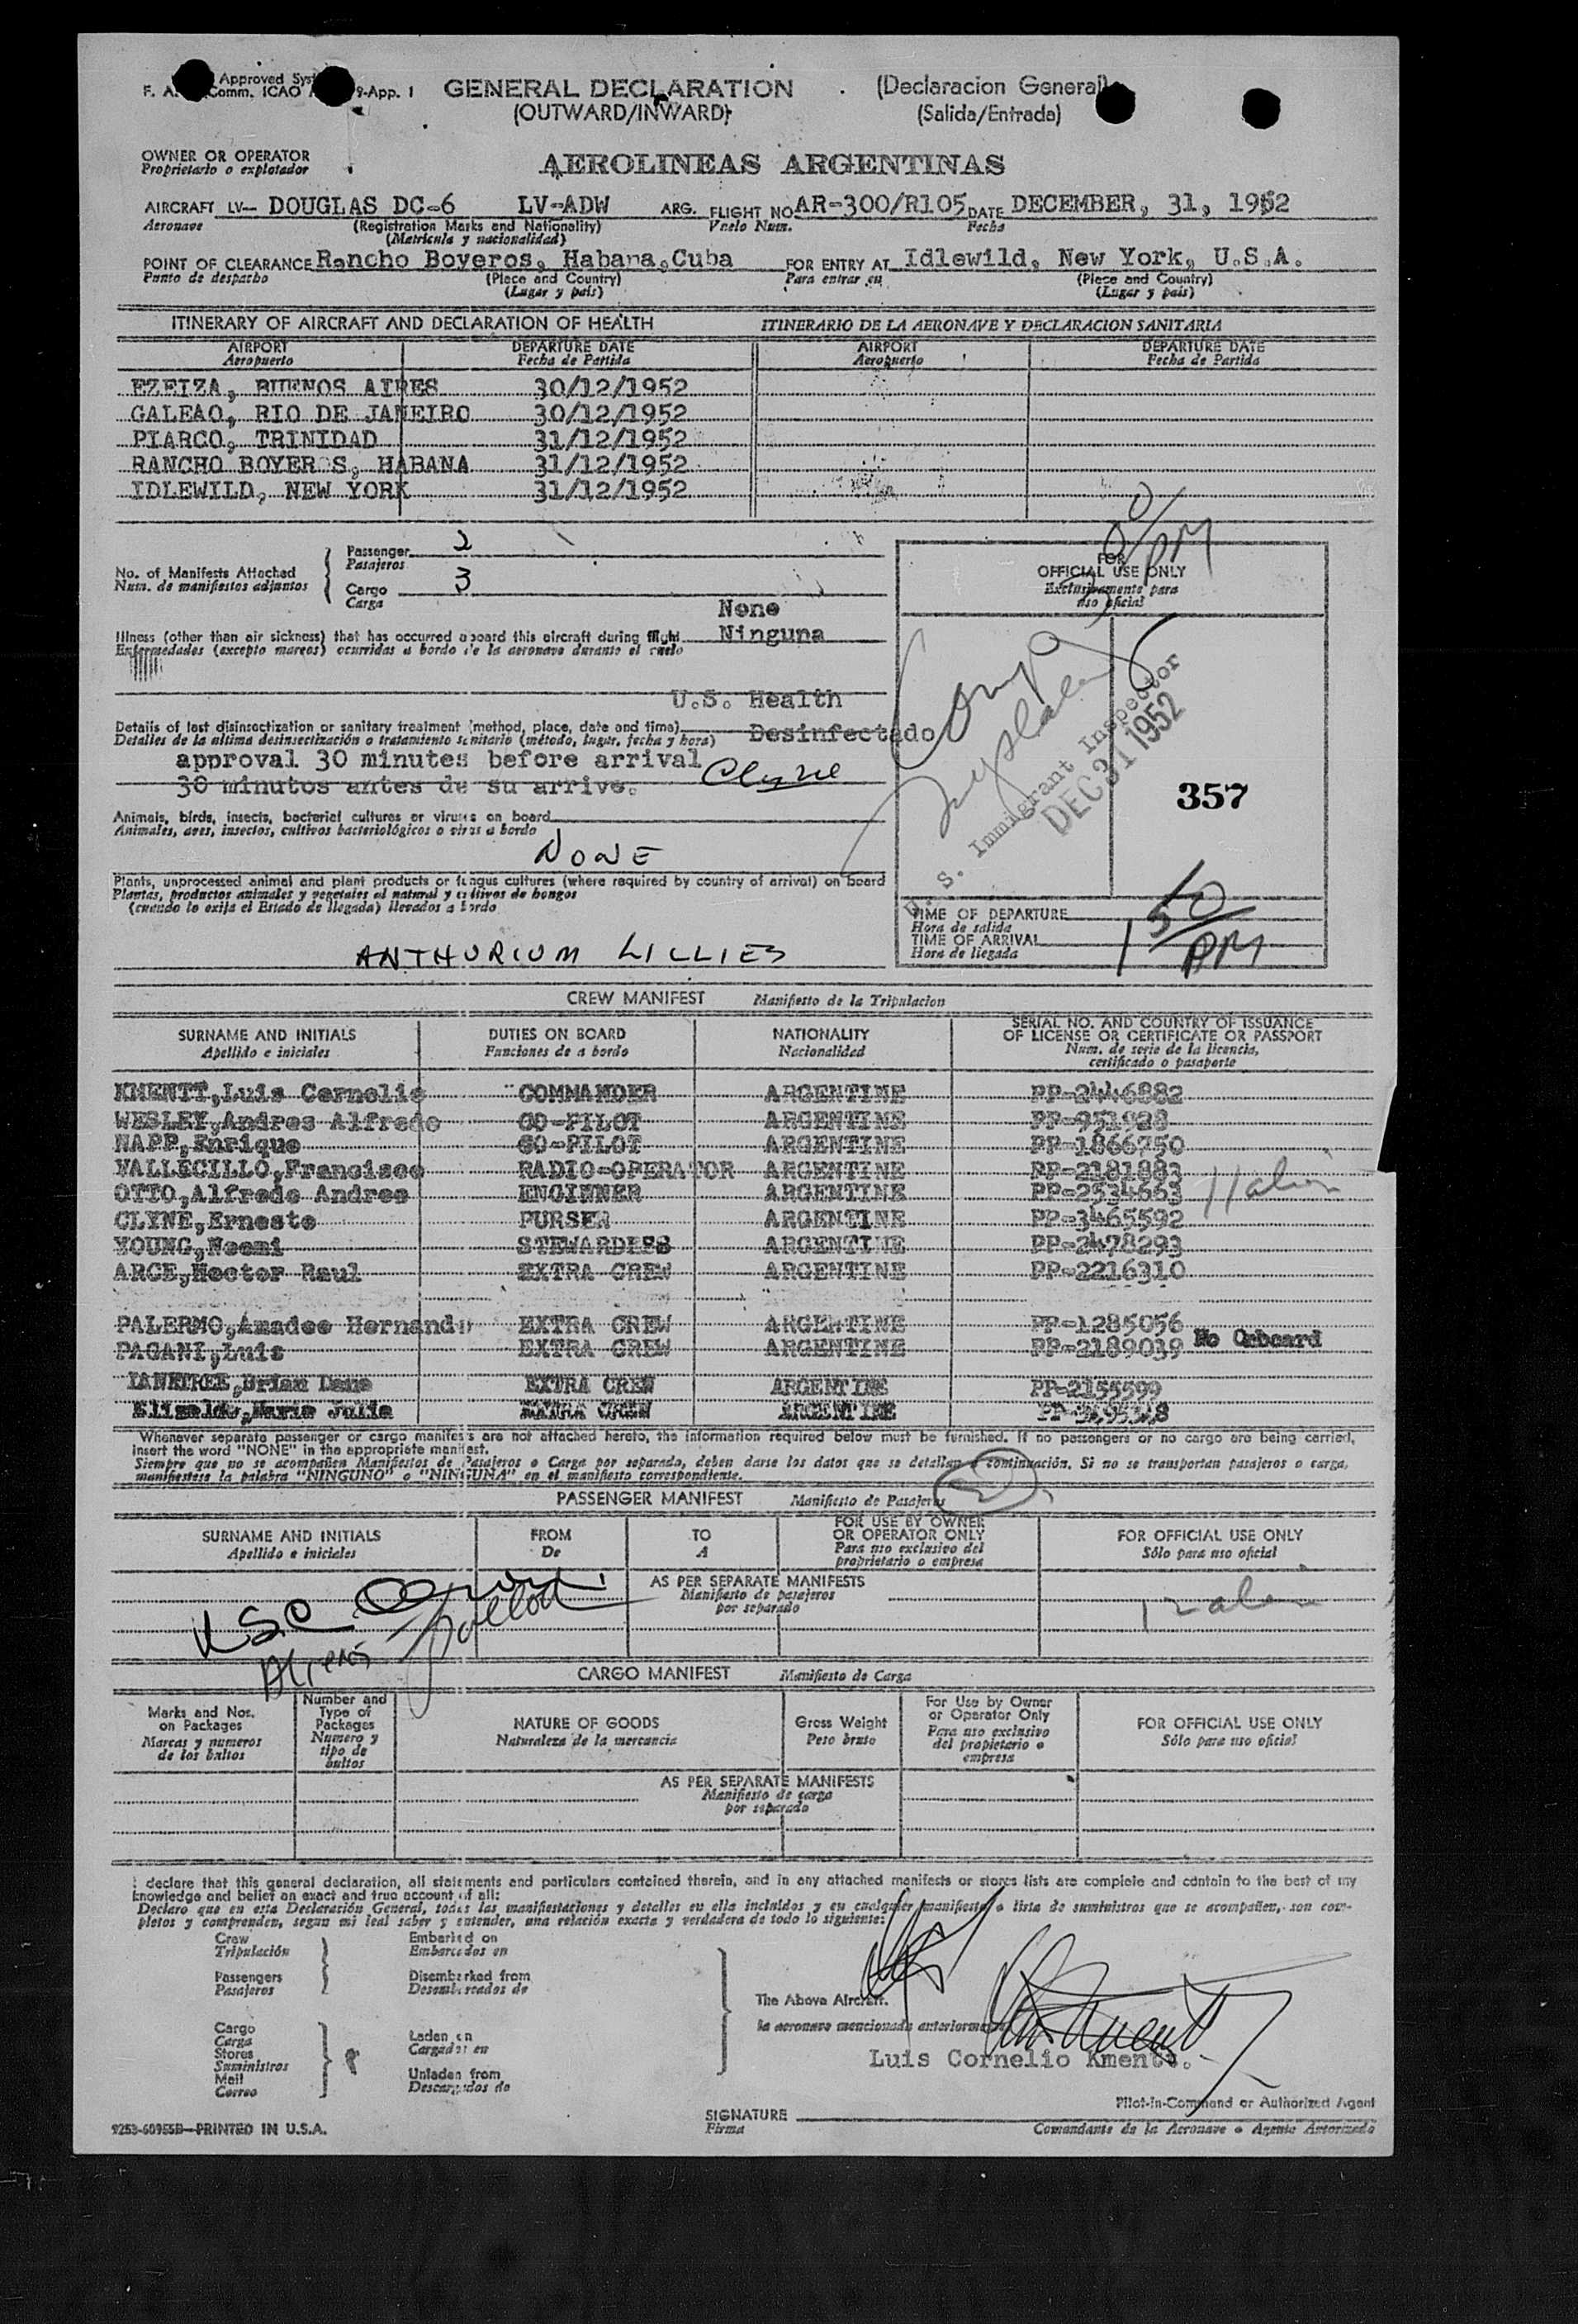 Approved Sys
F. A. Comm. ICAO 9-App. 1
GENERAL DECLARATION (Declaracion General)
(OUTWARD/INWARD) (Salida/Entrada)
OWNER OR OPERATOR
Proprietario o explotador
AEROLINEAS ARGENTINAS
AIRCRAFT LV- DOUGLAS DC-6 LV-ADW ARG. FLIGHT NO. AR-300/R105 DATE DECEMBER, 31, 1952
Aeronave (Registration Marks and Nationality) Vuelo Num. Fecha
(Matricula y nacionalidad)
POINT OF CLEARANCE Rancho Boyeros, Habana, Cuba FOR ENTRY AT Idlewild, New York, U.S.A.
Punto de despacho (Place and Country) Para entrar en (Place and Country)
(Lugar y pais) (Lugar y pais)
ITINERARY OF AIRCRAFT AND DECLARATION OF HEALTH ITINERARIO DE LA AERONAVE Y DECLARACION SANITARIA
AIRPORT DEPARTURE DATE AIRPORT DEPARTURE DATE
Aeropuerto Fecha de Partida Aeropuerto Fecha de Partida
EZEIZA, BUENOS AIRES 30/12/1952
GALEAO, RIO DE JANEIRO 30/12/1952
PIARCO, TRINIDAD 31/12/1952
RANCHO BOYEROS, HABANA 31/12/1952
IDLEWILD, NEW YORK 31/12/1952
No. of Manifests Attached
Num. de manifiestos adjuntos
Passenger 2
Pasajeros
Cargo 3
Carga
None
Illness (other than air sickness) that has occurred aboard this aircraft during flight Ninguna
Enfermedades (excepto mareos) ocurridas a bordo de la aeronave durante el vuelo
U.S. Health
Details of last disinsectization or sanitary treatment (method, place, date and time) Desinfectado
Detalles de la ultima desinsectización o tratamiento sanitario (método, lugar, fecha y hora)
approval 30 minutes before arrival Clyne
30 minutos antes de su arrivo.
Animals, birds, insects, bacterial cultures or viruses on board
Animales, aves, insectos, cultivos bacteriológicos o virus a bordo
NONE
Plants, unprocessed animal and plant products or fungus cultures (where required by country of arrival) on board
Plantas, productos animales y vegetales al natural y cultivos de hongos
(cuando lo exija el Estado de llegada) llevados a bordo
ANTHURIUM LILLIES
PM
FOR
OFFICIAL USE ONLY
Exclusivamente para
uso oficial
U. S. Immigrant Inspector
DEC 31 1952
357
TIME OF DEPARTURE
Hora de salida
TIME OF ARRIVAL
Hora de llegada
1 50 PM
CREW MANIFEST Manifiesto de la Tripulacion
SURNAME AND INITIALS DUTIES ON BOARD NATIONALITY SERIAL NO. AND COUNTRY OF ISSUANCE
OF LICENSE OR CERTIFICATE OR PASSPORT
Apellido e iniciales Funciones de a bordo Nacionalidad Num. de serie de la licencia,
certificado o pasaporte
KMENTT,Luis Cornelio COMMANDER ARGENTINE PP-2446882
WESLEY,Andres Alfredo CO-PILOT ARGENTINE PP-951928
NAPP,Enrique CO-PILOT ARGENTINE PP-1866750
VALLECILLO,Francisco RADIO-OPERATOR ARGENTINE PP-2181883
OTTO,Alfredo Andres ENGINNER ARGENTINE PP-2534663
CLYNE,Ernesto PURSER ARGENTINE PP-3465592
YOUNG,Noemi STEWARDESS ARGENTINE PP-2478293
ARCE,Hector Raul EXTRA CREW ARGENTINE PP-2216310
PALERMO,Amadeo Hernando EXTRA CREW ARGENTINE PP-1285056
PAGANI,Luis EXTRA CREW ARGENTINE PP-2189039 No Onboard
EXTRA CREW ARGENTINE PP-2155599
Elizalde,Maria Julia EXTRA CREW ARGENTINE
Whenever separate passenger or cargo manifests are not attached hereto, the information required below must be furnished. If no passengers or no cargo are being carried,
insert the word "NONE" in the appropriate manifest.
Siempre que no se acompañen Manifiestos de Pasajeros o Carga por separado, deben darse los datos que se detallan a continuación. Si no se transportan pasajeros o carga,
manifiestese la palabra "NINGUNO" o "NINGUNA" en el manifiesto correspondiente.
PASSENGER MANIFEST Manifiesto de Pasajeros
SURNAME AND INITIALS FROM TO FOR USE BY OWNER
OR OPERATOR ONLY FOR OFFICIAL USE ONLY
Apellido e iniciales De A Para uso exclusivo del
proprietario o empresa Sólo para uso oficial
AS PER SEPARATE MANIFESTS
Manifiesto de pasajeros
por separado
USC
Aliens
CARGO MANIFEST Manifiesto de Carga
Marks and Nos.
on Packages
Marcas y numeros
de los bultos
Number and
Type of
Packages
Numero y
tipo de
bultos
NATURE OF GOODS
Naturaleza de la mercancia
Gross Weight
Peso bruto
For Use by Owner
or Operator Only
Para uso exclusivo
del propietario o
empresa
FOR OFFICIAL USE ONLY
Sólo para uso oficial
AS PER SEPARATE MANIFESTS
Manifiesto de carga
por separado
I declare that this general declaration, all statements and particulars contained therein, and in any attached manifests or stores lists are complete and contain to the best of my
knowledge and belief an exact and true account of all:
Declaro que en esta Declaración General, todas las manifestaciones y detalles en ella incluidos y en cualquier manifiesto o lista de suministros que se acompañen, son com-
pletos y comprenden, segun mi leal saber y entender, una relación exacta y verdadera de todo lo siguiente:
Crew
Tripulación
Passengers
Pasajeros
Embarked on
Embarcados en
Disembarked from
Desembarcados de
Cargo
Carga
Stores
Suministros
Mail
Correo
Laden on
Cargados en
Unladen from
Descargados de
The Above Aircraft.
la aeronave mencionada anteriormente
Luis Cornelio Kmentt.
Pilot-in-Command or Authorized Agent
SIGNATURE
Firma Comandante de la Aeronave o Agente Autorizado
9253-60955B—PRINTED IN U.S.A.